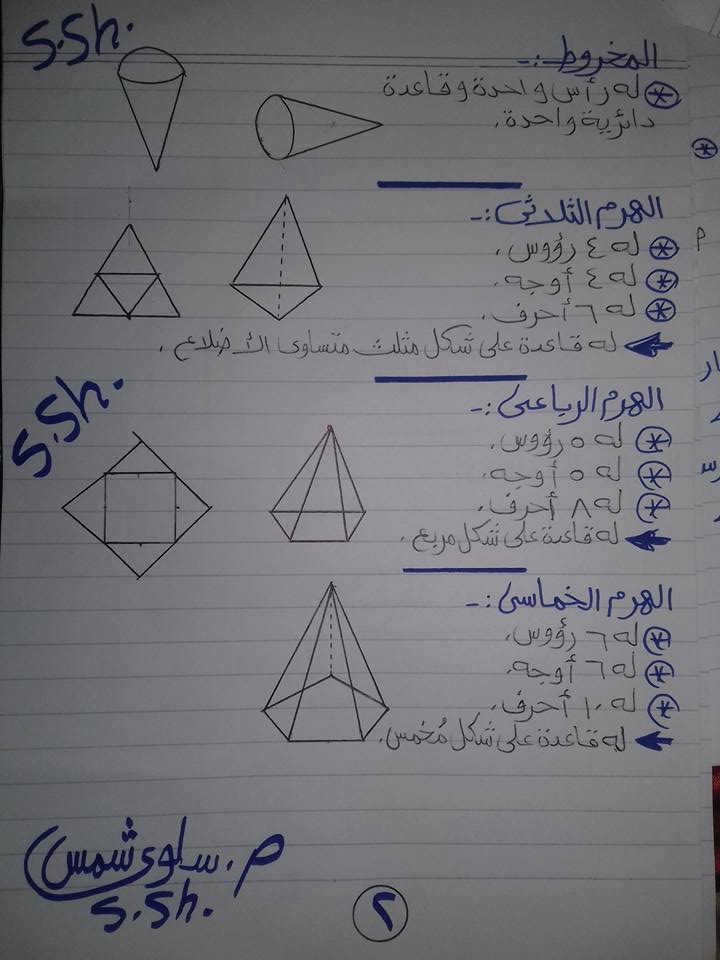 S.Sh.
المخروط:-
* له رأس واحدة وقاعدة
دائرية واحدة.
الهرم الثلاثى:-
* له ٤ رؤوس.
* له ٤ أوجه.
* له ٦ أحرف.
له قاعدة على شكل مثلث متساوى الأضلاع.
S.Sh.
الهرم الرباعى:-
* له ٥ رؤوس.
* له ٥ أوجه.
* له ٨ أحرف.
له قاعدة على شكل مربع.
الهرم الخماسى:-
* له ٦ رؤوس.
* له ٦ أوجه.
* له ١٠ أحرف.
له قاعدة على شكل مُخمس.
م. سلوى شمس
S.Sh.
٢